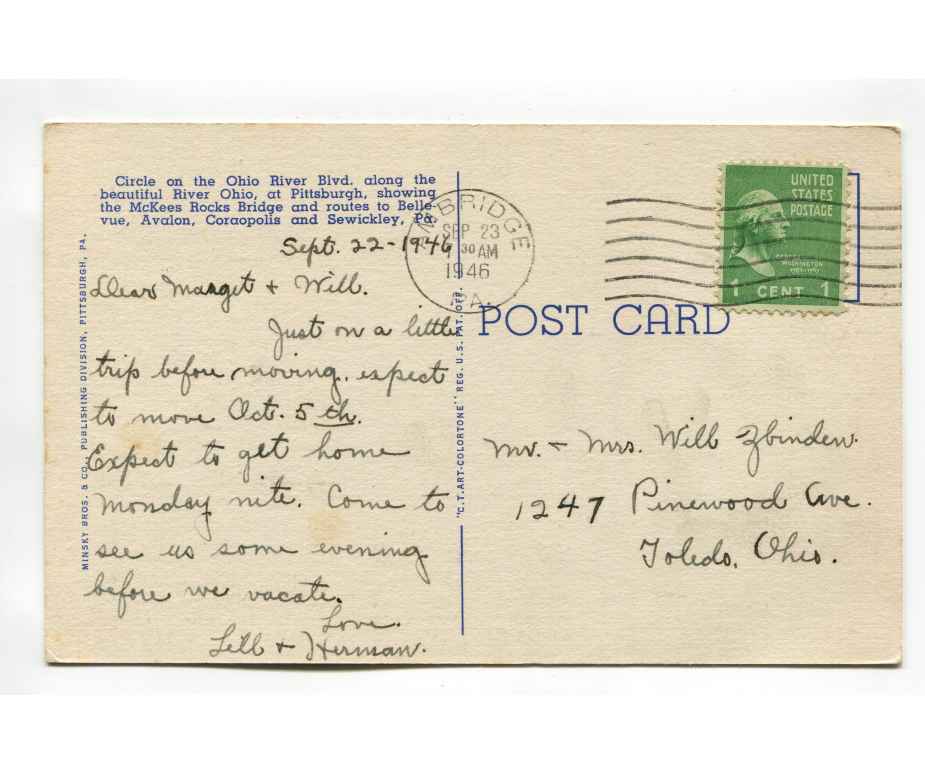 Circle on the Ohio River Blvd. along the
beautiful River Ohio, at Pittsburgh, showing
the McKees Rocks Bridge and routes to Belle-
vue, Avalon, Coraopolis and Sewickley, Pa.
Sept. 22-1946
Dear Marget + Will.
Just on a little
trip before moving. expect
to move Oct. 5th.
Expect to get home
Monday nite. Come to
see us some evening
before we vacate.
Love.
Lell + Herman.
MINSKY BROS. & CO. PUBLISHING DIVISION, PITTSBURGH, PA.
"C.T. ART-COLORTONE" REG. U.S. PAT. OFF.
AMBRIDGE
SEP 23
30 AM
1946
PA.
UNITED
STATES
POSTAGE
GEORGE
WASHINGTON
1 CENT 1
POST CARD
Mr. + Mrs. Will Zbinden.
1247 Pinewood Ave.
Toledo, Ohio.